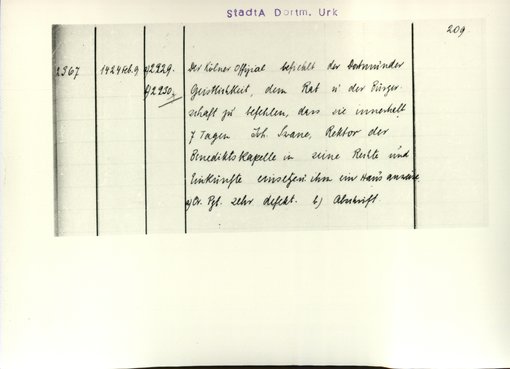 StadtA Dortm. Urk
209
2367 1424 Feb. 9 a) 2929. Der Kölner Offizial befiehlt der Dortmunder
b) 2930. Geistlichkeit, dem Rat u der Bürger-
schaft zu befehlen, dass sie innerhalb
7 Tagen Joh. Swane, Rektor der
Benediktskapelle in seine Rechte und
Einkünfte einsetzen ihm ein Haus anweise
a) Or. Pgt. sehr defekt. b) Abschrift.